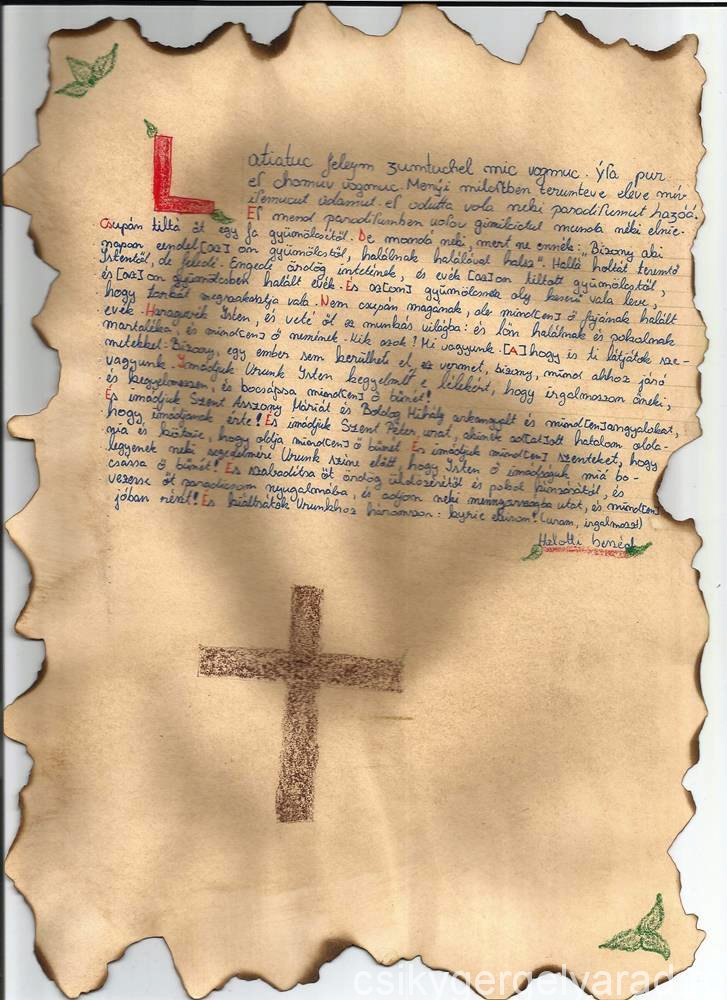 Latiatuc feleym zumtuchel mic vogmuc. ẏsa pur
es chomuv uogmuc. Menẏi milostben terumteve eleve miv
isemucut ádamut. es odutta vola neki paradisumut hazóá.
Es mend paradisumben uolov gimilcictul munda neki elnie.
Csupán tiltá őt egy fa gyümölcsétől. De mondá neki, mert ne ennék: „Bizony aki
napon eendel [az] on gyümölcstől, halálnak halálával halsz". Hallá holtát teremtő
Istentől, de feledé. Engede ördög intésének, és evék [az] on tiltott gyümölcstől,
és [az] on gyümölcsben halált evék. És az[on] gyümölcsnek oly keserű vala leve,
hogy torkát megszakasztja vala. Nem csupán magának, de mind[en] ő fajának halált
evék. Haragu​vék Isten, és veté őt ez munkás világba: és lőn halálnak és pokolnak
martaléka, és mind[en] ő nemének. Kik azok? Mi vagyunk. [A]hogy is ti látjátok sze-
metekkel: Bizony, egy ember sem kerülheti el ez vermet, bizony, mind ahhoz járó
vagyunk. Imádjuk Urunk Isten kegyelmét e lélekért, hogy irgalmazzon őneki,
és kegyelmezzen, és bocsássa mind[en] ő bűnét!
És imádjuk Szent Asszony Máriát és Boldog Mihály arkangyalt és mind[en]angyalokat,
hogy imádjanak érte! És imádjuk Szent Péter urat, akinek ad[at]ott hatalom olda-
nia és kötnie, hogy oldja mind[en] ő bűnét. És imádjuk mind[en] szenteket, hogy
legyenek neki segedelmére Urunk színe előtt, hogy Isten ő imádságuk miá bo-
csássa ő bűnét! És szabadítsa őt ördög üldözésétől és pokol kínzásától, és
vezesse őt paradicsom nyugalmába, és adjon neki mennyországba utat, és mind[en]
jóban részt! És kiáltsátok Urunkhoz háromszor: kyrie eleison! (uram, irgalmazz!)
Halotti beszéd
csikygergelyarad